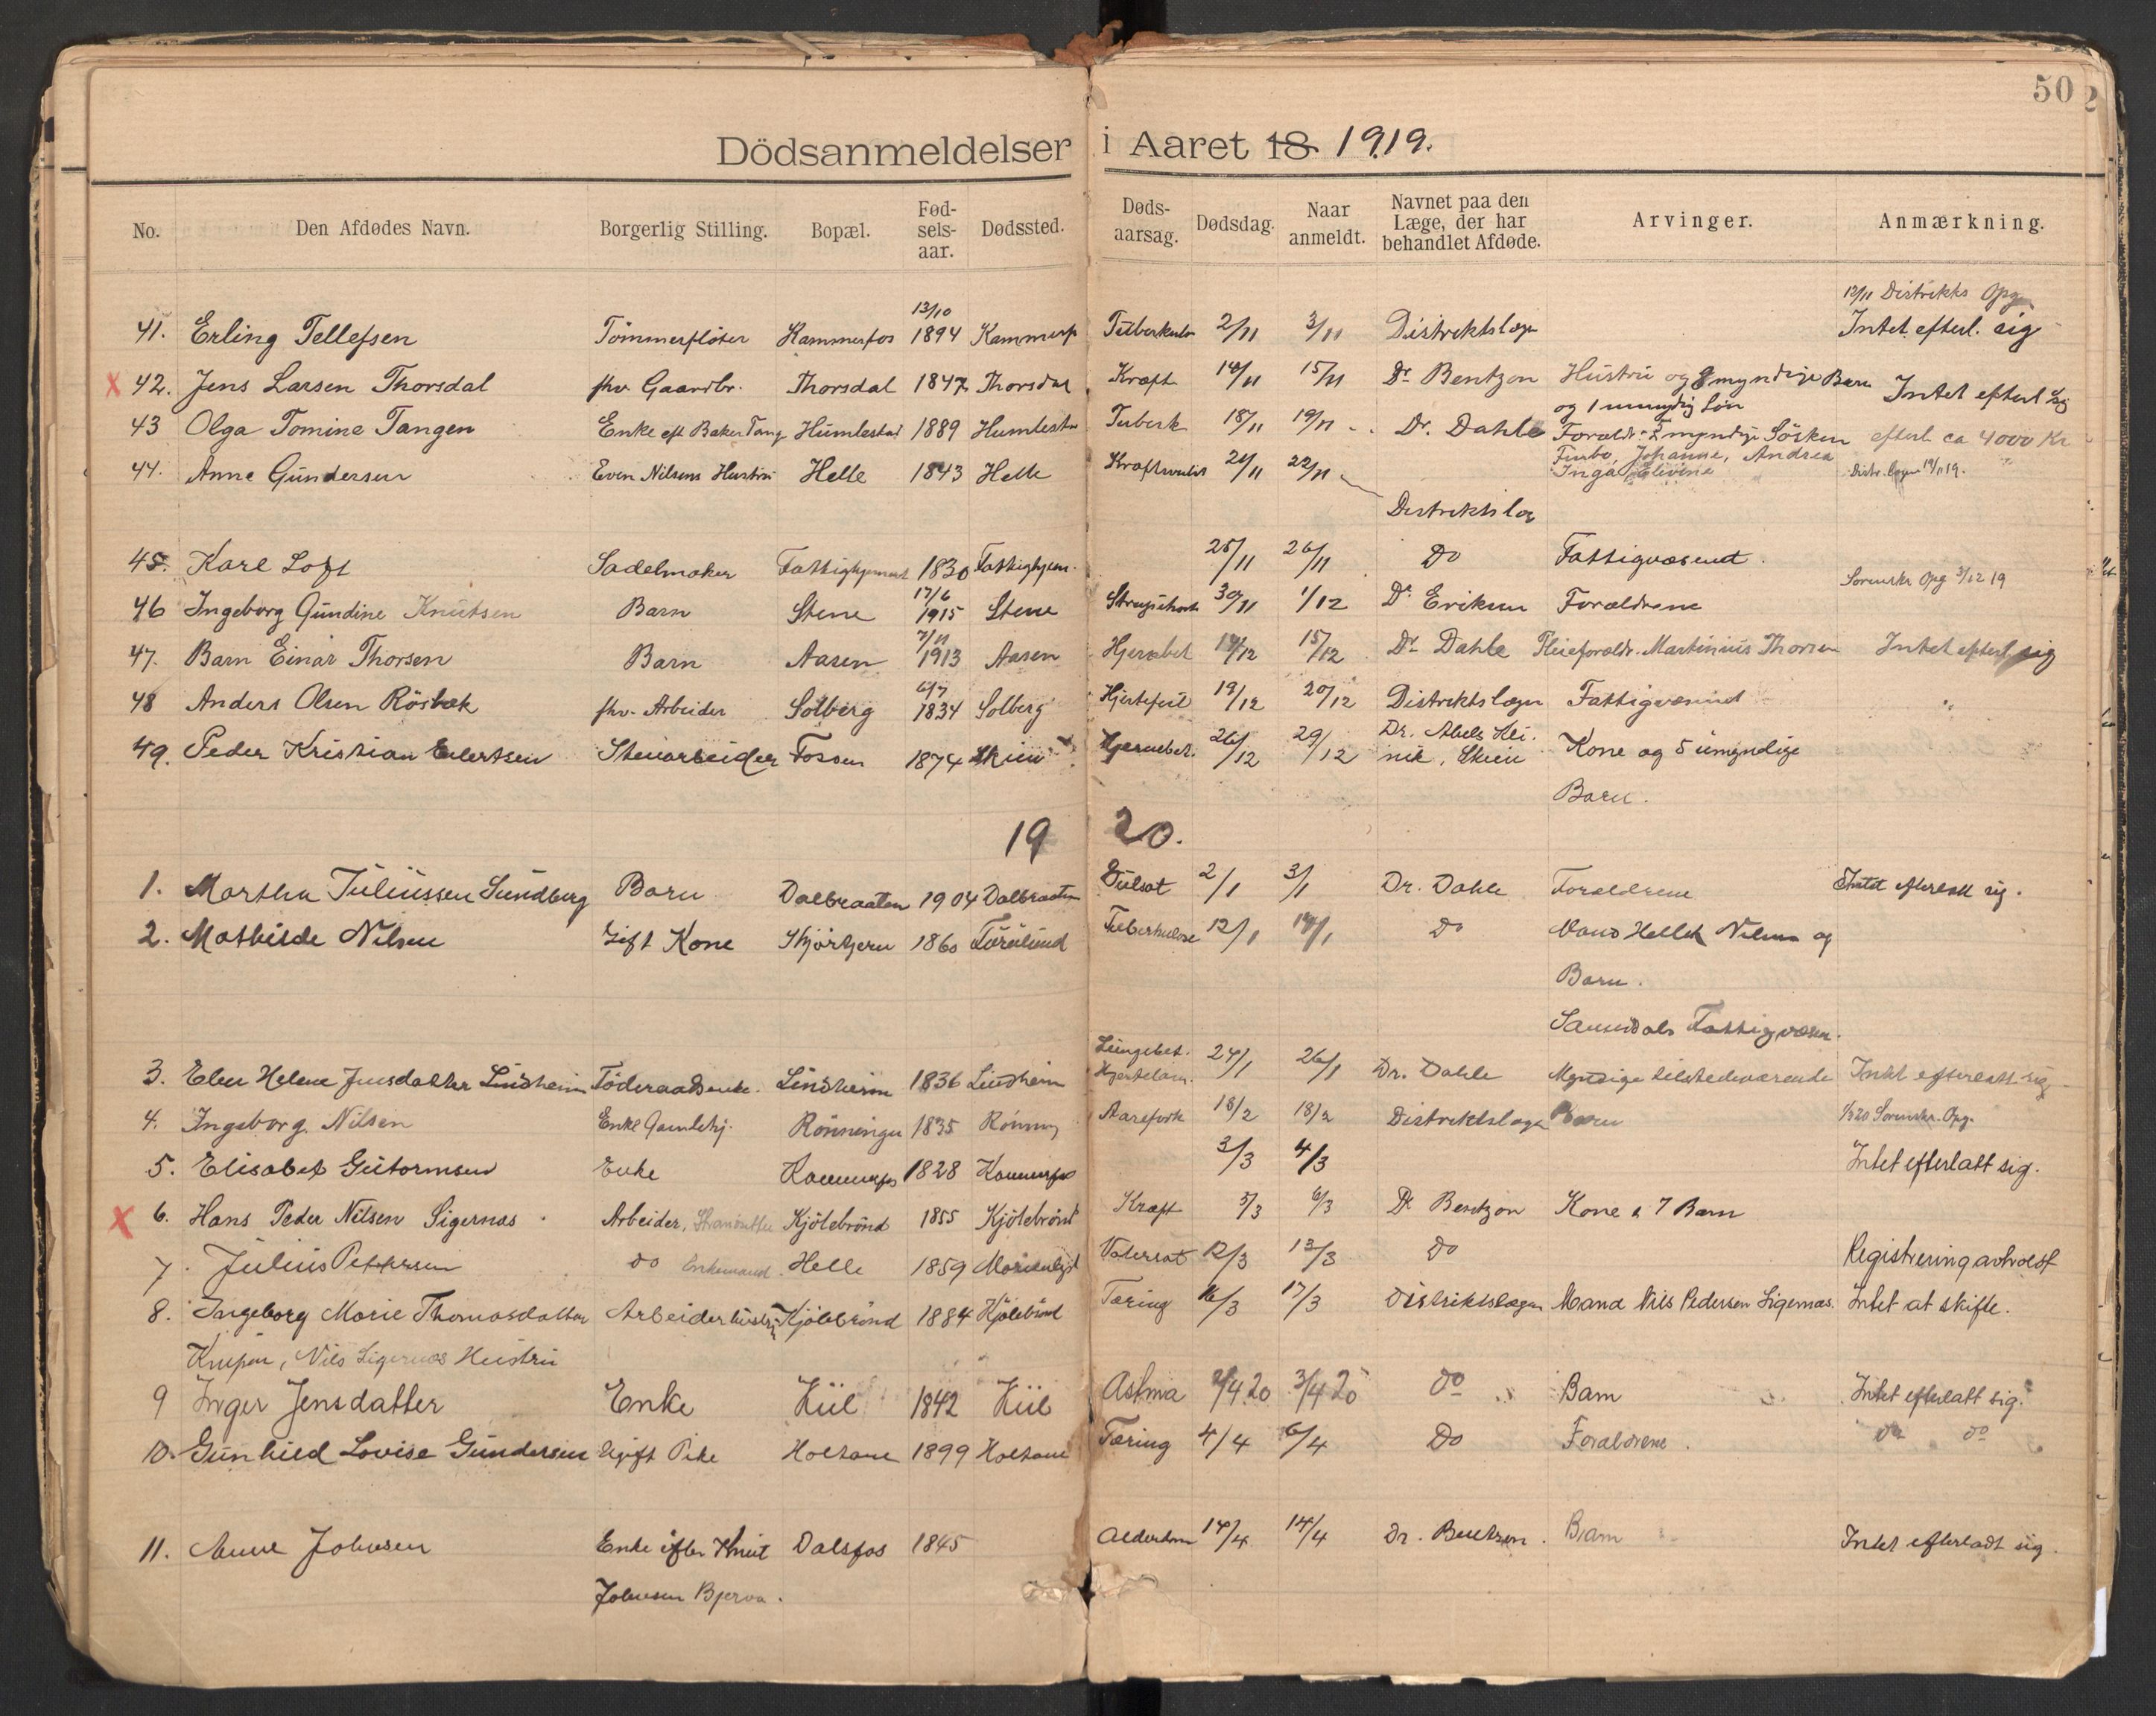 50
Dödsanmeldelser i Aaret 18 1919.
No. Den Afdødes Navn. Borgerlig Stilling. Bopæl. Fødselsaar. Dødssted. Dødsaarsag. Dødsdag. Naar anmeldt. Navnet paa den Læge, der har behandlet Afdøde. Arvinger. Anmærkning.
13/10 12/11 Distrikts Opg
41. Erling Tellefsen Tömmerflöter Kammerfos 1894 Kammerf 2/11 3/11 Distriktslægen Intet efterl. sig
42. Jens Larsen Thorsdal fhv. Gaardbr. Thorsdal 1847 Thorsdal Kræft 14/11 15/11 Dr Bentzon Hustru og 8 myndige Barn Intet efterl sig
og 1 umyndig Søn
43 Olga Tomine Tangen Enke eft Baker Tang Humlestad 1889 Humlestad Tuberk 18/11 19/11 Dr. Dahle Forældr. myndige Sösken efterl. ca 4000 Kr
Johanne, Andrea
44. Anne Gundersen Even Nilsens Hustru Helle 1843 Helle 21/11 22/11 Inga Distr. lægen 19/11 19.
Distriktslæg
45. Karl Loft Sadelmaker Fattighjemmet 1830 Fattighjem. 25/11 26/11 Do Fattigvæsenet.
17/6 Sorenskr Opg 3/12 19
46 Ingeborg Gundine Knutsen Barn Stene 1915 Stene Strupehoste 30/11 1/12 Dr Eriksen Forældrene
7/11
47. Barn Einar Thorsen Barn Aasen 1913 Aasen Hjernebet 14/12 15/12 Dr Dahle Pleieforældr. Martinius Thorsen Intet efterl sig
6/7
48 Anders Olsen Rösbæk fhv. Arbeider Solberg 1834 Solberg Hjertefeil 19/12 20/12 Distriktslægen Fattigvæsenet "
49. Peder Kristian Evertsen Stenarbeider Fossen 1874 Skien Hjernebet. 26/12 29/12 Dr. Abels Klinik, Skien Kone og 5 umyndige
Barn.
1920.
1. Martha Juliussen Sundberg Barn Dalbraaten 1904 Dalbraaten Gulsot 2/1 3/1 Dr. Dahle Forældrene Intet efterlatt sig.
2. Mathilde Nilsen Gift Kone 1860 Furulund Tuberkulose 12/1 14/1 Do Mand Hellek Nilsen og
Barn.
Sannidals Fattigvæsen.
Lungebet.
3. Elen Helene Jensdatter Lindheim Föderaadsenke. Lindheim 1836 Lindheim Hjertelam. 24/1 26/1 Dr. Dahle Myndige tilstedeværende Intet efterlatt sig
4. Ingeborg Nilsen Enke Gamlehj. Rönningen 1835 Rönning Aarefork 18/2 18/2 Distriktslægen Barn Sorenskr. Opg.
5. Elisabet Gutormsen Enke Kammerfos 1828 Kammerfos 3/3 4/3 Intet efterlatt sig.
6. Hans Peder Nilsen Sigernæs Arbeider, Kjölebrönd 1855 Kjölebrönd Kræft 5/3 6/3 Dr Bentzon Kone & 7 Barn
7. Julius Pettersen do Enkemand Helle 1859 Marienlyst Vatersot 12/3 13/3 Do Registrering avholdt
8. Ingeborg Marie Thomasdatter Arbeiderhustru Kjölebrönd 1884 Kjölebrönd Tæring 16/3 17/3 Distriktslægen Mand Nils Pedersen Sigernæs. Intet at skifte.
Knipen, Nils Sigernæs Hustru
9 Inger Jensdatter Enke Kiil 1842 Kiil Astma 2/4 20 3/4 20 do Barn Intet efterlatt sig.
10. Gunhild Lovise Gundersen Ugift Pike Holtane 1899 Holtane Tæring 4/4 6/4 Do Forældrene. do do
11. Anne Johnsen Enke efter Knut Dalsfos 1845 Alderdom 14/4 14/4 Dr. Bentzon. Barn Intet efterladt sig.
Johnsen Bjerva.